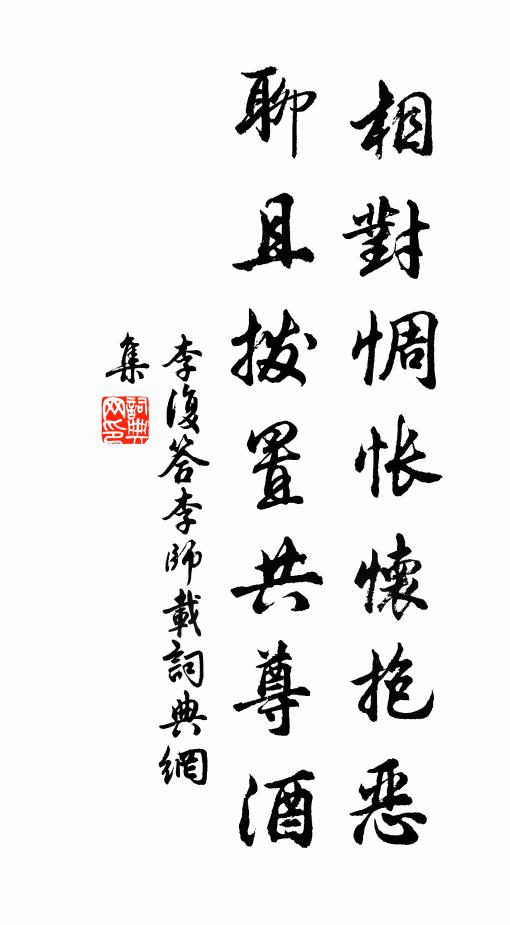 相對惆悵懷抱惡
聊且拨置共尊酒
李復答李師載詞典網
集
詞典
网印